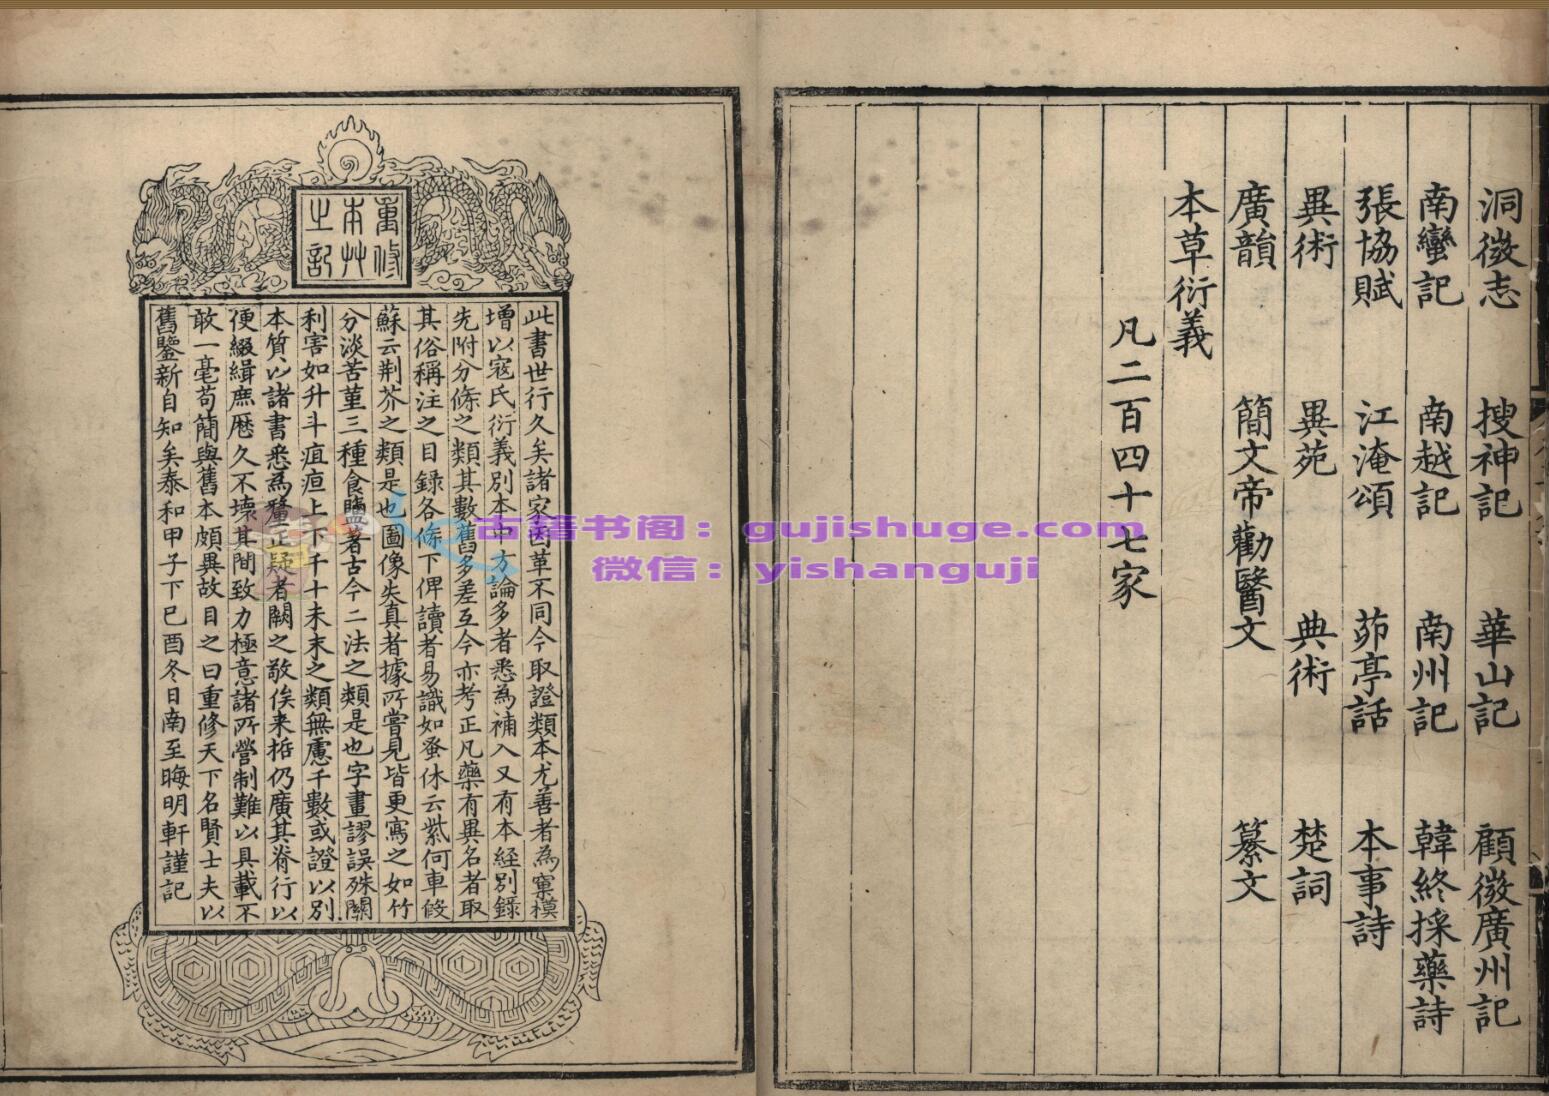 洞微志　搜神記　華山記　顧微廣州記
南蠻記　南越記　南州記　韓終採藥詩
張協賦　江淹頌　茆亭話　本事詩
異術　異苑　典術　楚詞
廣韻　簡文帝勸醫文　纂文
本草衍義
凡二百四十七家
重修
本艸
之記
此書世行久矣諸家因革不同今取證類本尤善者為窠模
增以寇氏衍義別本中方論多者悉為補入又有本經別錄
先附分條之類其數舊多差互今亦考正凡藥有異名者取
其俗稱注之目錄各條下俾讀者易識如蚤休云紫何車假
蘇云荆芥之類是也圖像失真者據所嘗見皆更寫之如竹
分淡苦堇三種食鹽著古今二法之類是也字畫謬誤殊關
利害如升斗疽疸上下千十未末之類無慮千數或證以別
本質以諸書悉為釐正疑者闕之敬俟来哲仍廣其脊行以
便綴緝庶歷久不壊其間致力極意諸所營制難以具載不
敢一毫苟簡與舊本頗異故目之曰重修天下名賢士夫以
舊鑒新自知矣泰和甲子下巳酉冬日南至晦明軒謹記
古籍书阁：gujishuge.com
微信：yishanguji